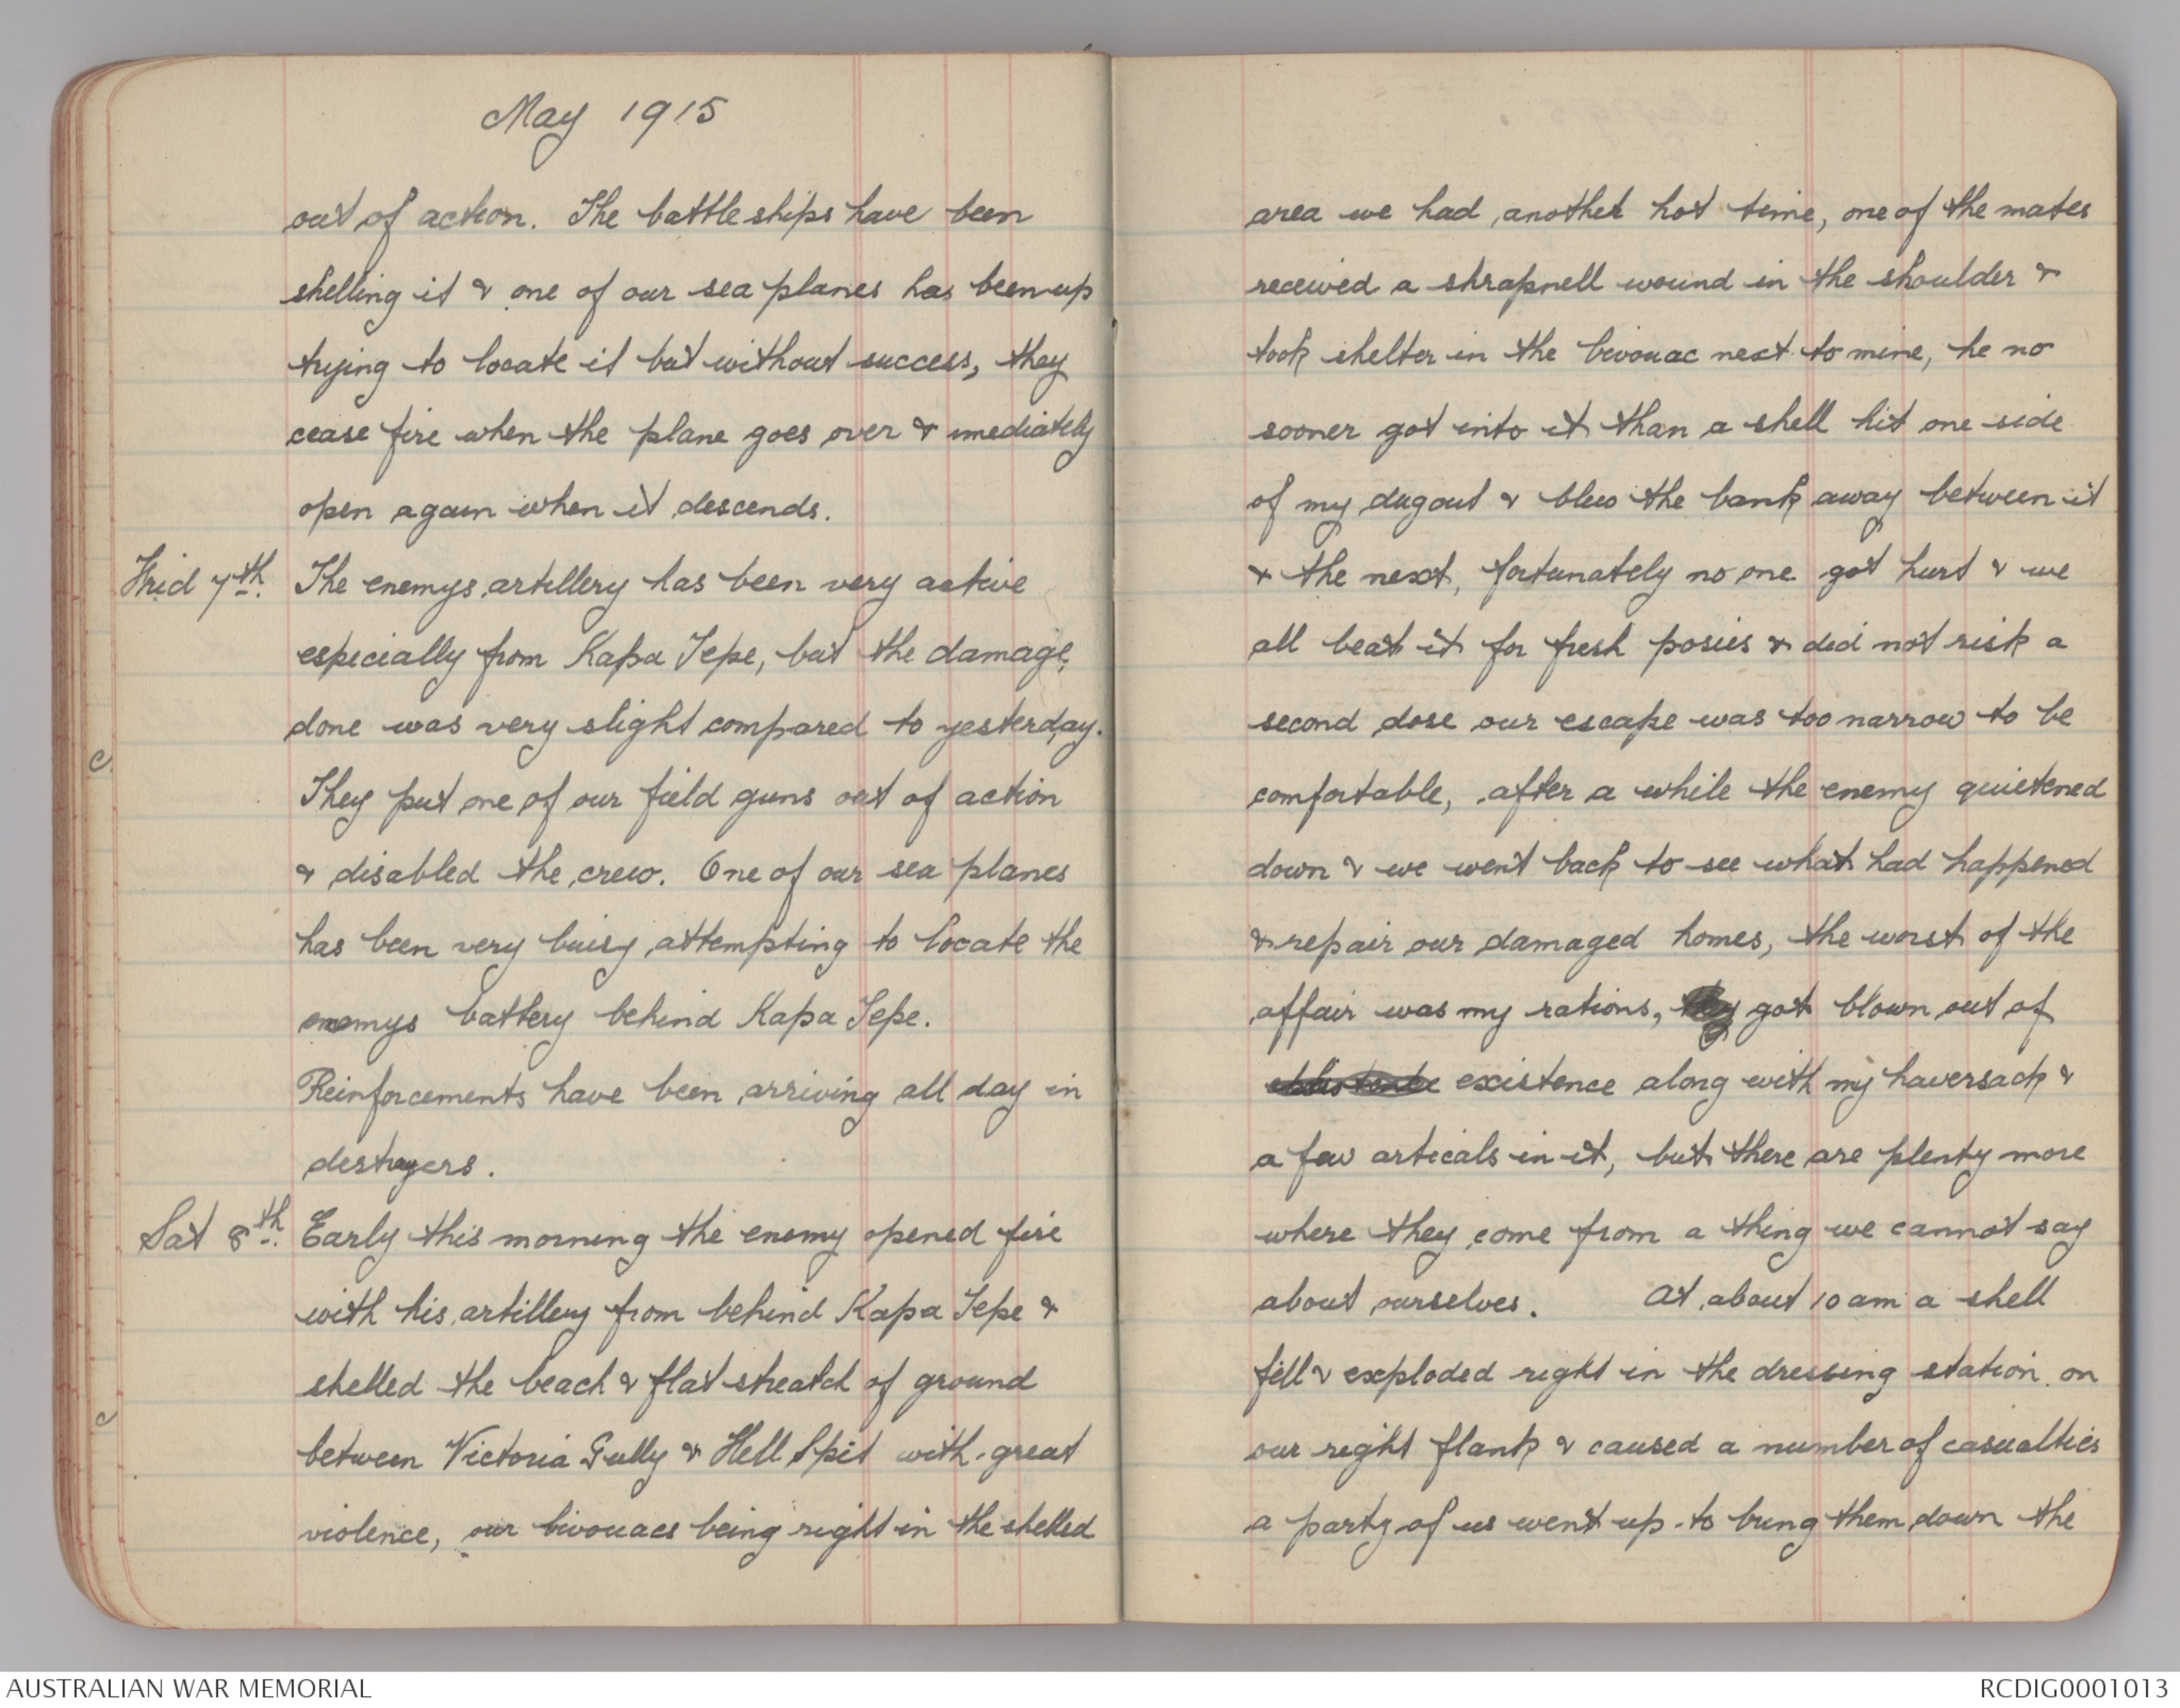 May 1915
out of action. The battleships have been
shelling it & one of our sea planes has been up
trying to locate it but without success, they
cease fire when the plane goes over & imediately
open again when it descends.
Frid 7th. The enemys artillery has been very active
especially from Kapa Tepe, but the damage,
done was very slight compared to yesterday.
They put one of our field guns out of action
& disabled the crew. One of our sea planes
has been very buisy attempting to locate the
enemys battery behind Kapa Tepe.
Reinforcements have been arriving all day in
destroyers.
Sat 8th. Early this morning the enemy opened fire
with his artillery from behind Kapa Tepe &
shelled the beach & flat streatch of ground
between Victoria Gully & Hell Spit with great
violence, our bivouacs being right in the shelled
area we had another hot time, one of the mates
received a shrapnell wound in the shoulder &
took shelter in the bivouac next to mine, he no
sooner got into it than a shell hit one side
of my dugout & blew the bank away between it
& the next, fortunately no one got hurt & we
all beat it for fresh posies & did not risk a
second dose our escape was too narrow to be
comfortable, after a while the enemy quietened
down & we went back to see what had happened
& repair our damaged homes, the worst of the
affair was my rations, they got blown out of
existence along with my haversack &
a few articals in it, but there are plenty more
where they come from a thing we cannot say
about ourselves. At about 10 am a shell
fell & exploded right in the dressing station on
our right flank & caused a number of casualties
a party of us went up to bring them down the
AUSTRALIAN WAR MEMORIAL
RCDIG0001013